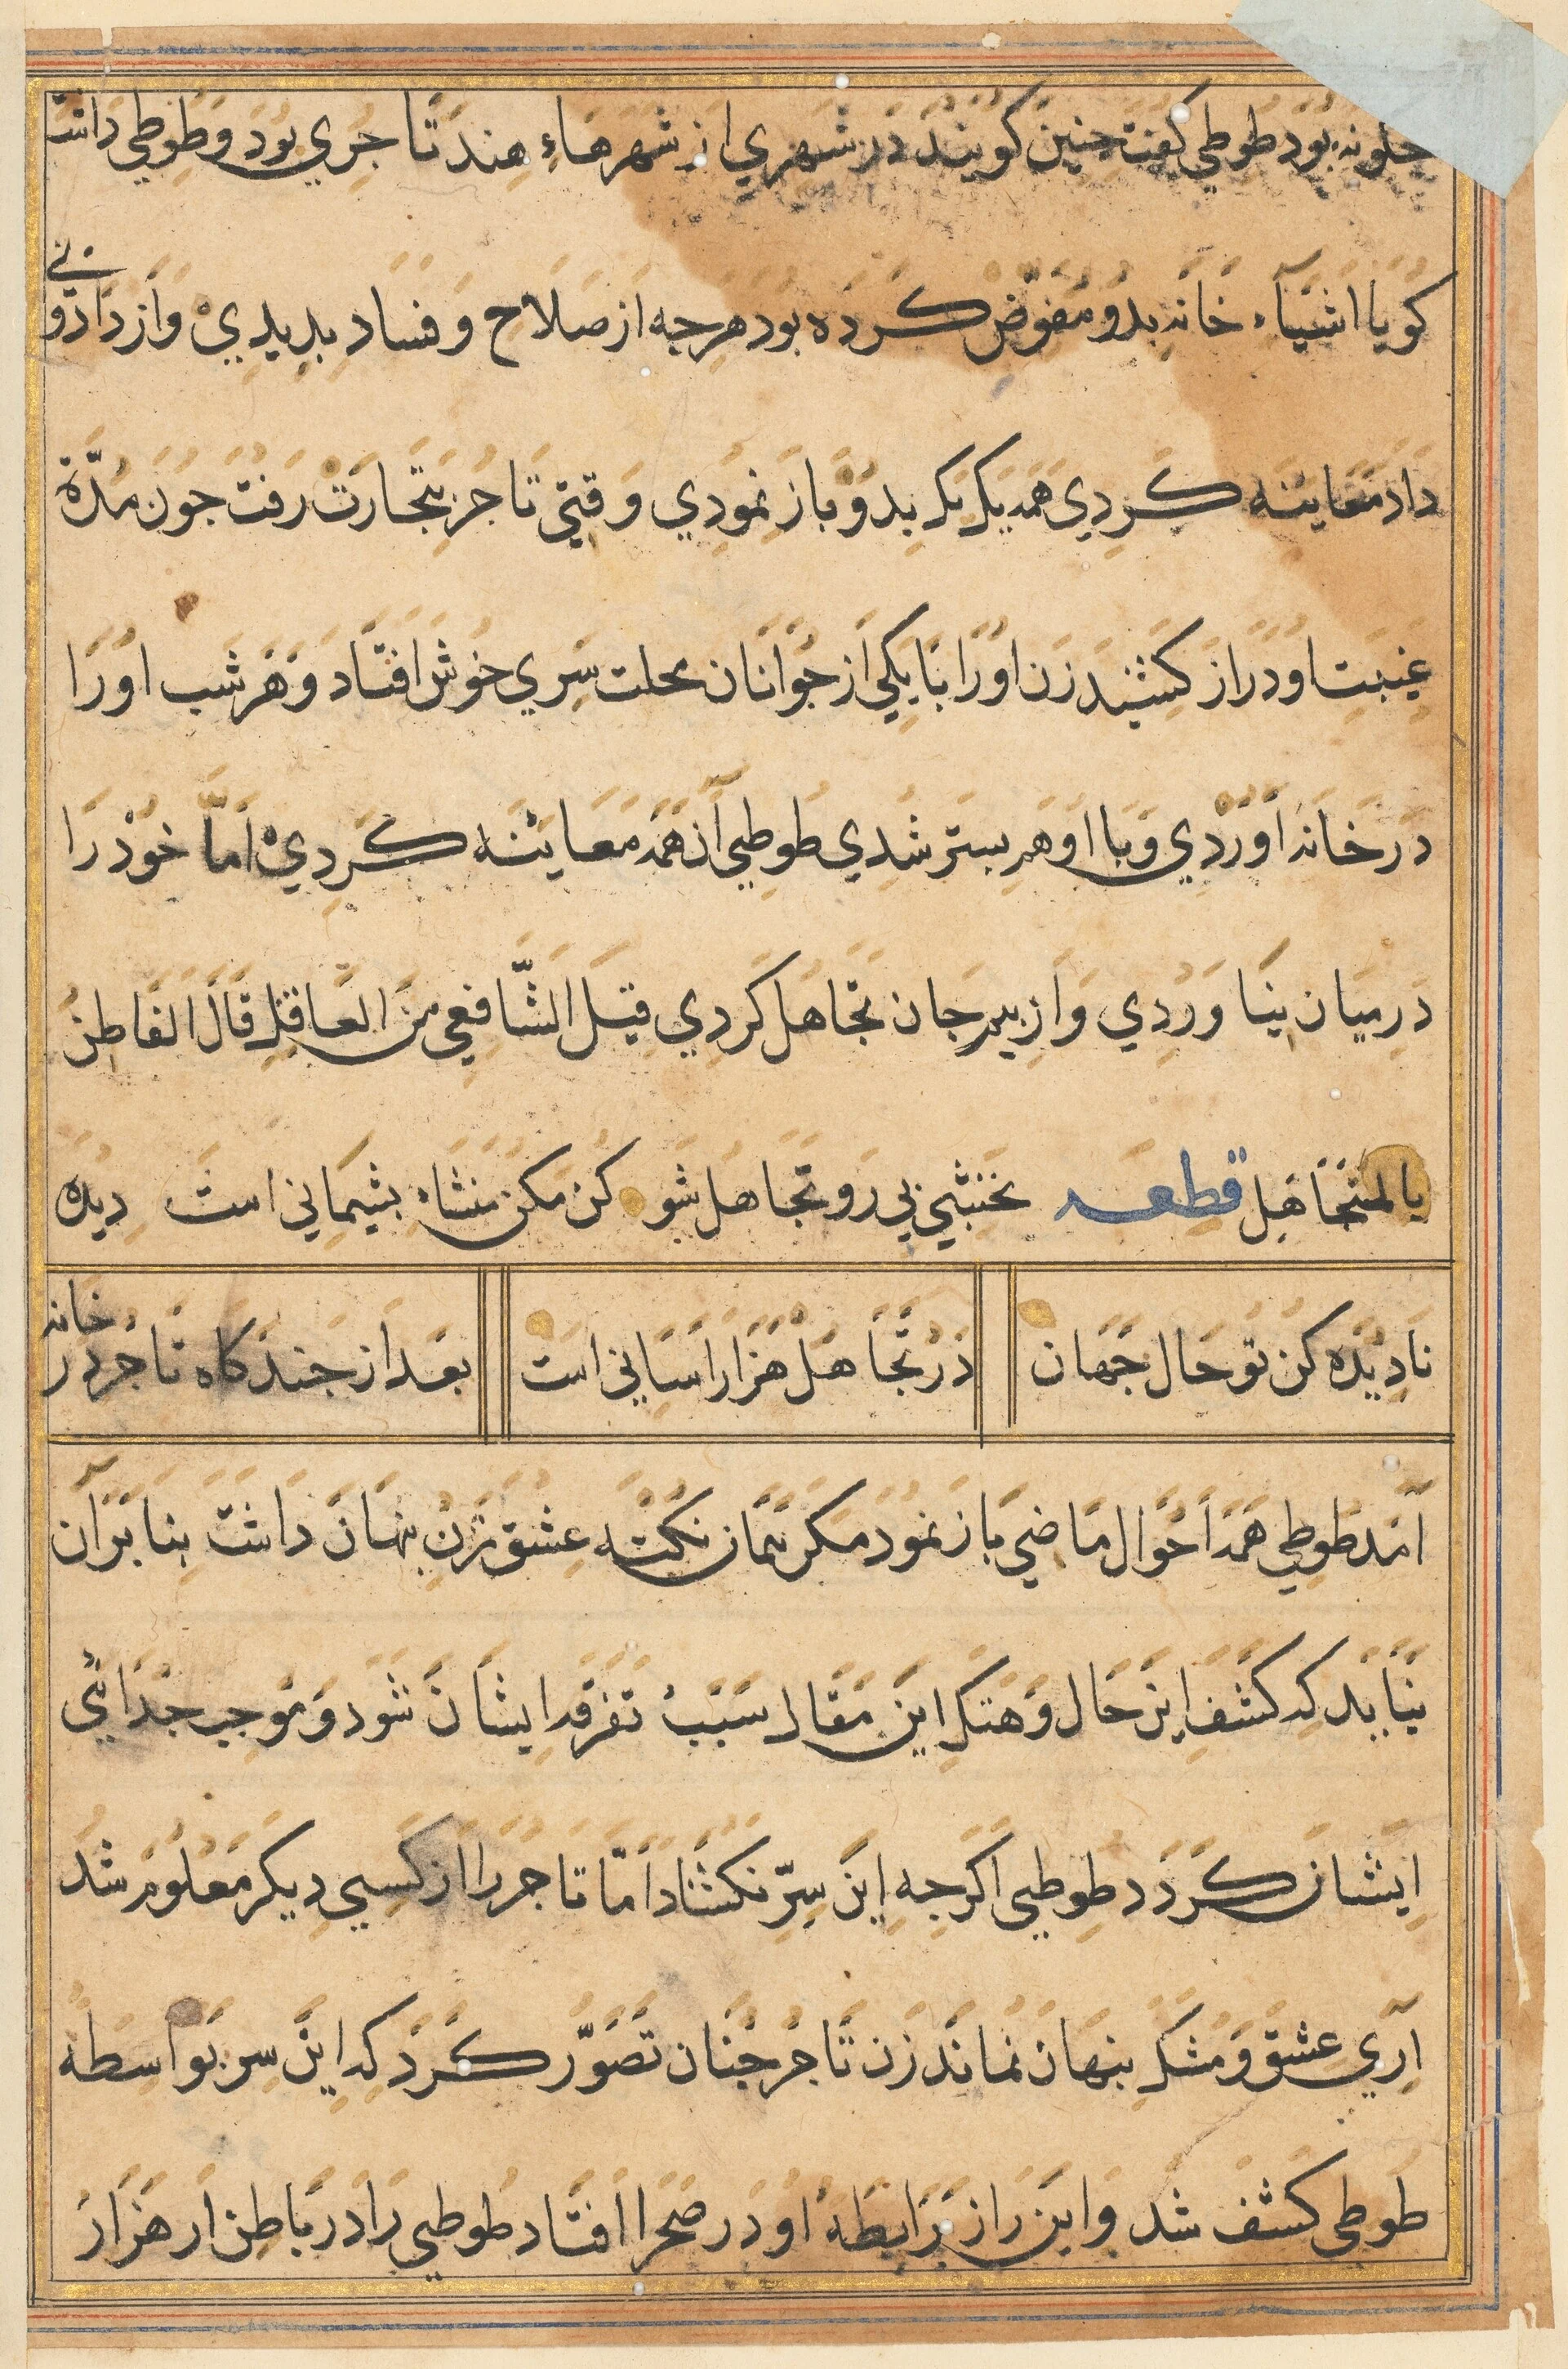 جلونه بود طوطي كفت جنين كويند در شهري از شهرهاءِ هند تاجري بود و طوطي داشت
كويا اشياء خانه بدو مفوّض كرده بود هرجه از صلاح و فساد بديدي و از داد و ني
داد معاينه كردي همه يك يك بدو باز نمودي وقتي تاجر بتجارت رفت جون مدّة
غيبت او دراز كشيد زن او را با يكي از جوانان محلت سري خوش افتاد و هر شب او را
در خانه اوردي و با او هم بستر شدي طوطي آن همه معاينه كردي امّا خود را
در ميان نياوردي و از بيم جان تجاهل كردي قيل الشّافعي من العاقل قال الفاطن
بالمتجاهل قطعه نخشبي رو تجاهل شو كن مكن منشاء بشيماني است ديده
ناديده كن تو حال جهان در تجاهل هزار اساني است بعد از جند كاه تاجر در خانه
آمد طوطي همه احوال ماضي باز نمود مكر همان نكته عشق زن بنهان داشت بنا بر آن
نبايد كه كشف اين حال و هتك اين مقال سبب تفرقه ايشان شود و موجب جدائي
ايشان كردد طوطي اكرجه اين سرّ نكشاد امّا تاجر را از كسي ديكر معلوم شد
آري عشق و مشك بنهان نماند زن تاجر جنان تصوّر كرد كه اين سر بواسطه
طوطي كشف شد و اين راز رابطه او در صحرا افتاد طوطي را در باطن ار هزار